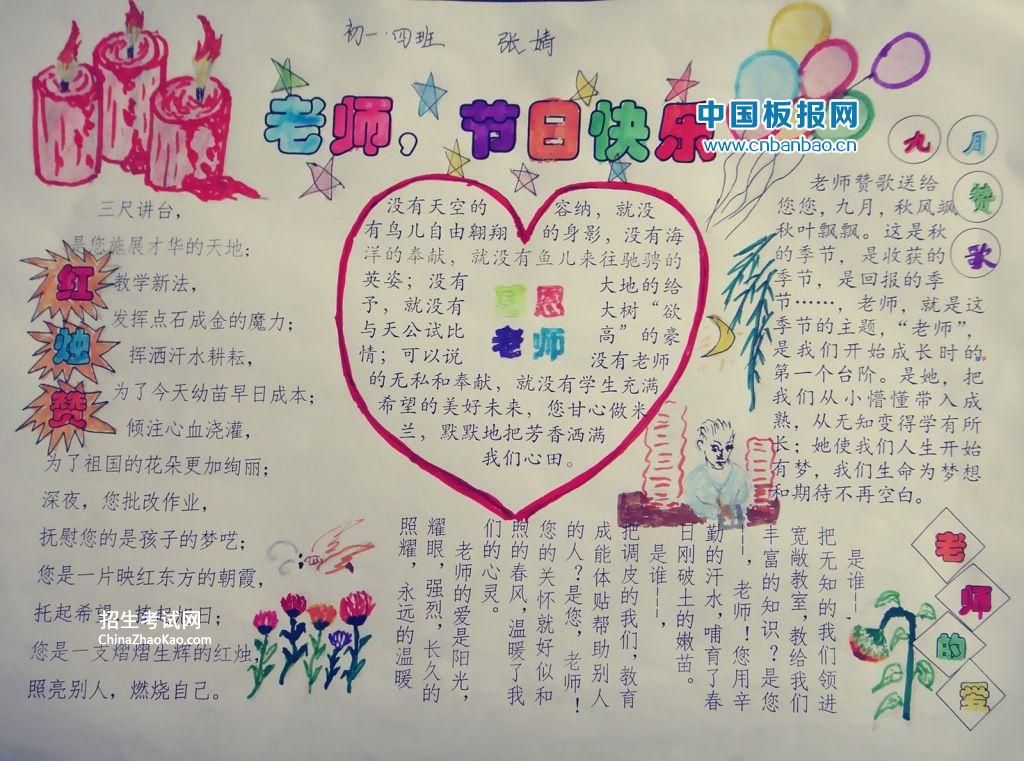 初一·四班 张婧
老师，节日快乐
中国板报网
www.cnbanbao.cn
红烛赞
三尺讲台，
是您施展才华的天地；
教学新法，
发挥点石成金的魔力；
挥洒汗水耕耘，
为了今天幼苗早日成本；
倾注心血浇灌，
为了祖国的花朵更加绚丽；
深夜，您批改作业，
抚慰您的是孩子的梦呓；
您是一片映红东方的朝霞，
托起希望
您是一支熠熠生辉的红烛，
照亮别人，燃烧自己。
招生考试网
ChinaZhaoKao.com
感恩
老师
没有天空的容纳，就没
有鸟儿自由翱翔的身影，没有海
洋的奉献，就没有鱼儿来往驰骋的
英姿；没有大地的给
予，就没有大树“欲
与天公试比高”的豪
情；可以说没有老师
的无私和奉献，就没有学生充满
希望的美好未来，您甘心做米
兰，默默地把芳香洒满
我们心田。
九月赞歌
老师赞歌送给
您您，九月，秋风飒
秋叶飘飘。这是秋
的季节，是收获的
季节，是回报的季
节……，老师，就是这
季节的主题，“老师”，
是我们开始成长时的
第一个台阶。是她，把
我们从小懵懂带入成
熟，从无知变得学有所
长；她使我们人生开始
有梦，我们生命为梦想
和期待不再空白。
老师的爱
是谁——
把无知的我们领进
宽敞教室，教给我们
丰富的知识？是您
——，老师！您用辛
勤的汗水，哺育了春
日刚破土的嫩苗。
是谁——，
把调皮的我们，教育
成能体贴帮助别人
的人？是您，老师！
您的关怀就好似和
煦的春风，温暖了我
们的心灵。
老师的爱是阳光，
耀眼，强烈，长久的
照耀，永远的温暖